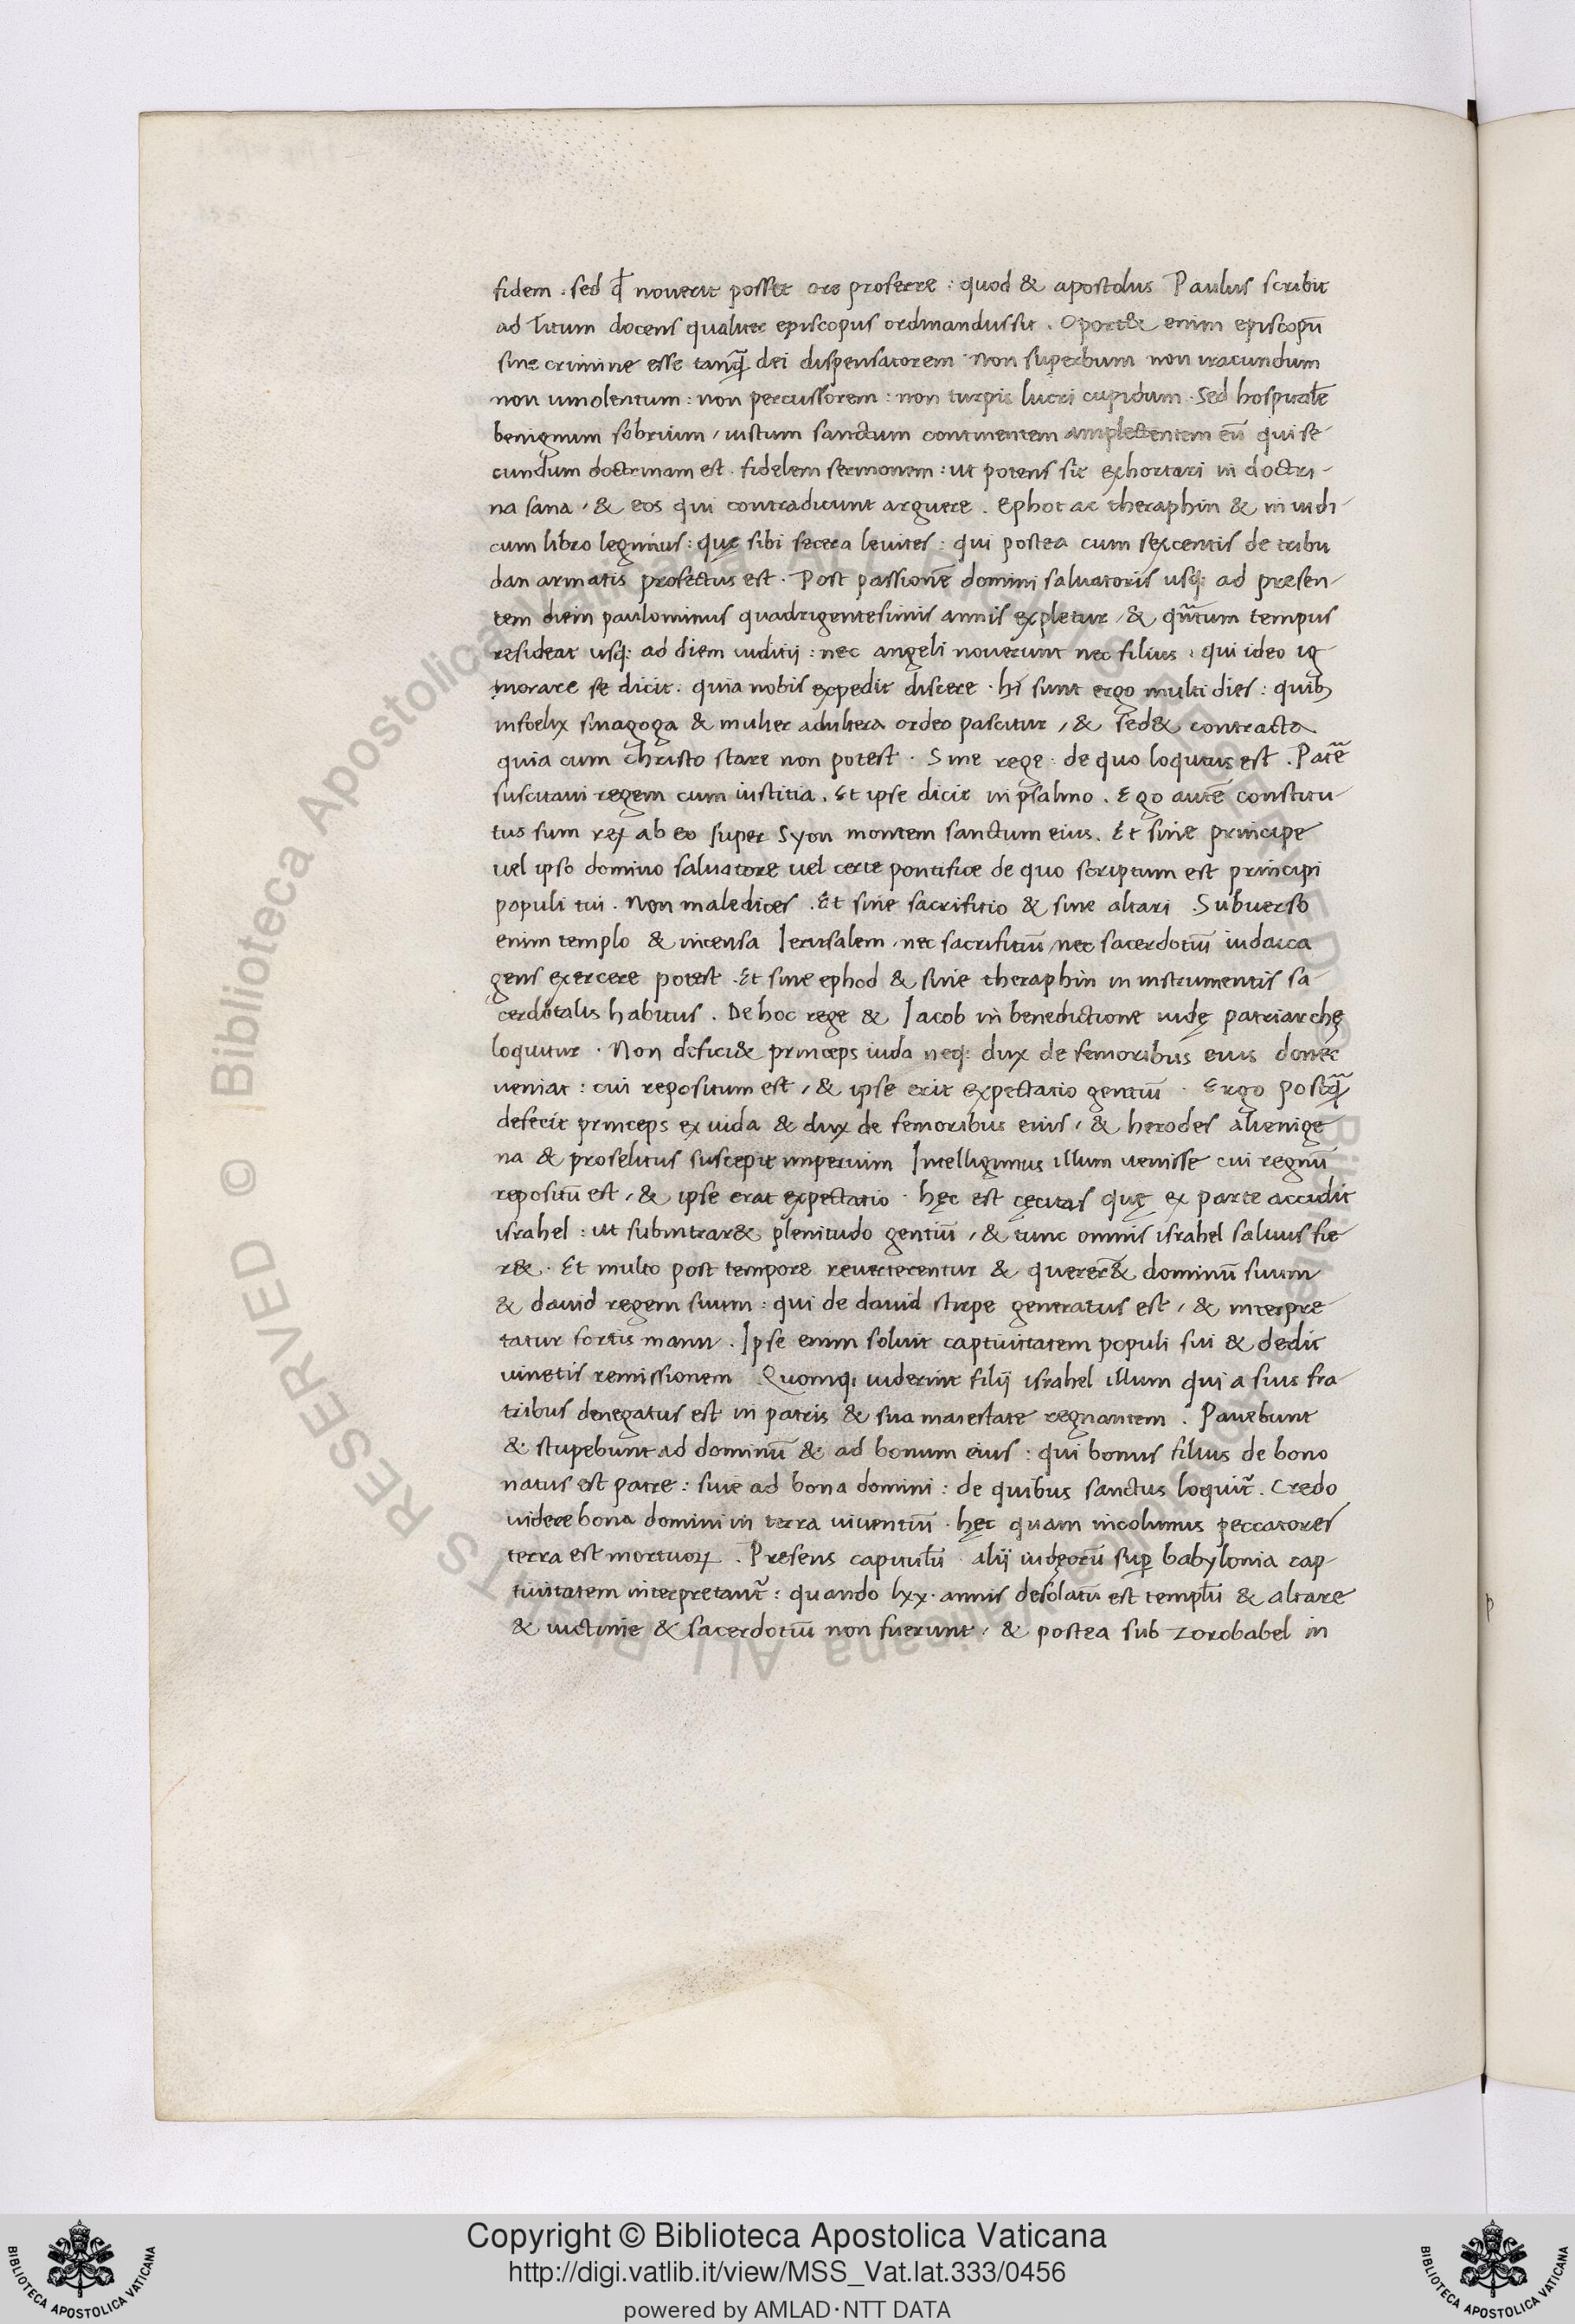 fidem . sed qđ nouerit posset ore proferre : quod & apostolus Paulus scribit
ad titum docens qualiter episcopus ordinandus sit . Oport& enim episcopū
sine crimine esse tanq̄ dei dispensatorem Non superbum non iracundum
non uinolentum : non percussorem : non turpis lucri cupidum . Sed hospitalē
benignum sobrium / iustum sanctum continentem amplectentem eū qui se
cundum doctrinam est . fidelem sermonem : ut potens sit exhortari in doctri-
na sana / & eos qui contradicunt arguere . Ephot ac theraphin & in iudi
cum libro legimus : quę sibi fecera leuites : qui postea cum sexcentis de tribu
dan armatis profectus est . Post passionē domini saluatoris usq; ad presen-
tem diem paulominus quadrigentesimis annis expletur / & qūtum tempus
resideat usq; ad diem iuditij : nec angeli nouerunt nec filius : qui ideo ig
morare se dicit . quia nobis expedit discere . hi sunt ergo multi dies : quib;
infoelix sinagoga & mulier adultera ordeo pascitur / & sed& contracta
quia cum christo stare non potest . Sine rege : de quo loqutus est . Patē
suscitaui regem cum iustitia . Et ipse dicit in psalmo . Ego autē constitu-
tus sum rex ab eo super Syon montem sanctum eius . Et sine principe
uel ipso domino saluatore uel certe pontifice de quo scriptum est principi
populi tui . Non maledices . Et sine sacrifitio & sine altari Subuerso
enim templo & incensa Ierusalem / nec sacrifitiū / nec sacerdotiū iudaica
gens exercere potest . Et sine ephod & sine theraphin in instrumentis sa
cerdotalis habitus . De hoc rege & Iacob in benedictione iudę patriarchę
loquitur . Non defici& princeps iuda neq; dux de femoribus eius donec
ueniat : cui repositum est / & ipse erit expectatio gentiū . Ergo postq̄
defecit princeps ex iuda & dux de femoribus eius / & herodes alienige
na & proselitus suscepit imperium Intelligimus illum uenisse cui regnū
repositū est / & ipse erat expectatio . hęc est cęcitas quę ex parte accidit
israhel : ut subintrar& plenitudo gentiū / & tunc omnis israhel saluus fie
r& . Et multo post tempore reuerterentur & querer& dominū suum
& dauid regem suum : qui de dauid stirpe generatus est / & interpre
tatur fortis manu . Ipse enim soluit captiuitatem populi sui & dedit
uinctis remissionem Quomq; uiderint filij israhel illum qui a suis fra
tribus denegatus est in patris & sua maiestate regnantem . Pauebunt
& stupebunt ad dominū & ad bonum eius : qui bonus filius de bono
natus est patre : siue ad bona domini : de quibus sanctus loquit̄ . Credo
uidere bona domini in terra uiuentiū . hęc quam incolimus peccatores
terra est mortuoꝝ . Presens capitulū alij iudęorū suꝑ babylonia cap-
tiuitatem interpretant̄ : quando lxx . annis desolatū est templū & altare
& uictimę & sacerdotiū non fuerunt / & postea sub zorobabel in
Copyright © Biblioteca Apostolica Vaticana
http://digi.vatlib.it/view/MSS_Vat.lat.333/0456
powered by AMLAD·NTT DATA